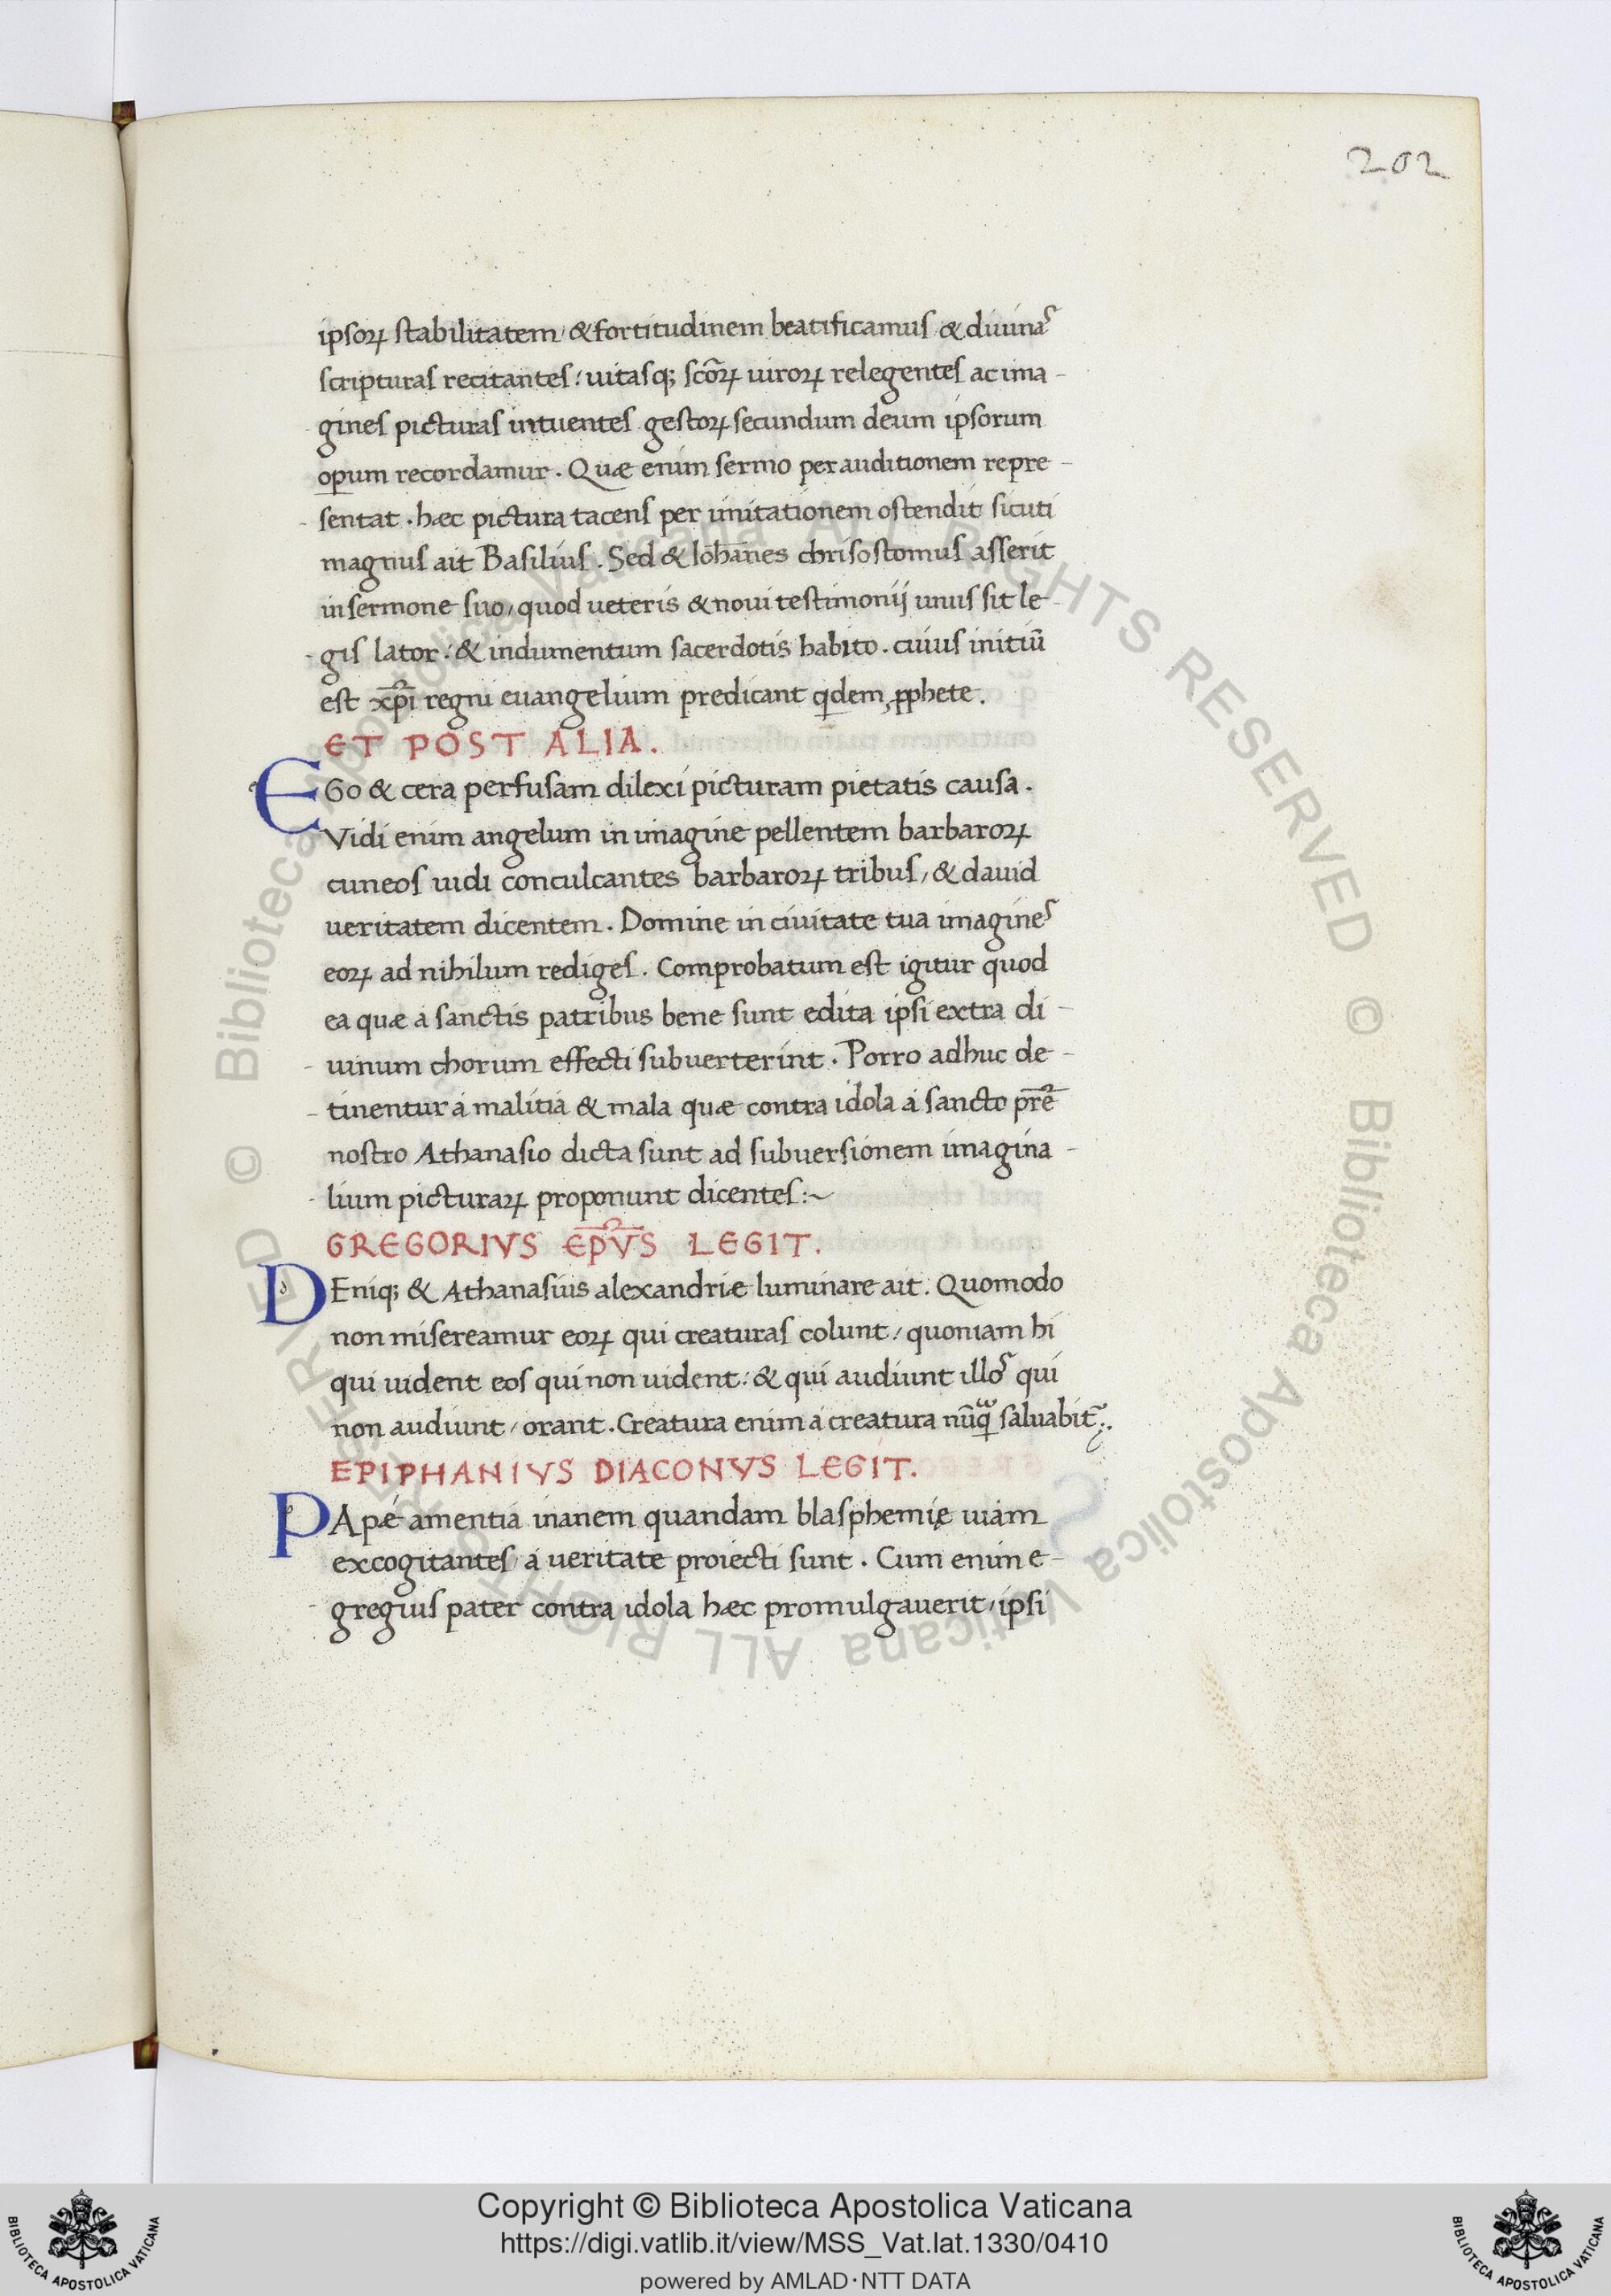 202
ipsoꝝ stabilitatem / & fortitudinem beatificamus & diuinas
scripturas recitantes: uitasq; sc̃oꝝ uiroꝝ relegentes ac ima-
gines picturas intuentes gestoꝝ secundum deum ipsorum
oꝑum recordamur. Quæ enim sermo per auditionem repre-
sentat. hæc pictura tacens per imitationem ostendit sicuti
magnus ait Basilius. Sed & Ioh̄anes chrisostomus asserit
in sermone suo, quod ueteris & noui testimonij unus sit le-
gis lator: & indumentum sacerdotis habito. cuius initiũ
est xp̄i regni euangelium predicant qdem, ꝓphete.
ET POST ALIA.
EGo & cera perfusam dilexi picturam pietatis causa.
Vidi enim angelum in imagine pellentem barbaroꝝ
cuneos uidi conculcantes barbaroꝝ tribus, & dauid
ueritatem dicentem. Domine in ciuitate tua imagines
eoꝝ ad nihilum rediges. Comprobatum est igitur quod
ea quæ a sanctis patribus bene sunt edita ipsi extra di-
uinum chorum effecti subuerterint. Porro adhuc de-
tinentur a malitia & mala quæ contra idola a sancto pr̄e
nostro Athanasio dicta sunt ad subuersionem imagina-
lium picturaꝝ proponunt dicentes:~
GREGORIVS EP̄VS LEGIT.
DEniq; & Athanasius alexandriæ luminare ait. Quomodo
non misereamur eoꝝ qui creaturas colunt, quoniam hi
qui uident eos qui non uident: & qui audiunt illos qui
non audiunt, orant. Creatura enim a creatura nũqᷓ saluabit̃.
EPIPHANIVS DIACONVS LEGIT.
PApé amentia inanem quandam blasphemię uiam
excogitantes, a ueritate proiecti sunt. Cum enim e-
gregius pater contra idola hæc promulgauerit, ipsi
© Biblioteca Apostolica Vaticana ALL RIGHTS RESERVED © Biblioteca Apostolica Vaticana ALL RIGHTS RESERVED
Copyright © Biblioteca Apostolica Vaticana
https://digi.vatlib.it/view/MSS_Vat.lat.1330/0410
powered by AMLAD·NTT DATA
BIBLIOTECA APOSTOLICA VATICANA
BIBLIOTECA APOSTOLICA VATICANA